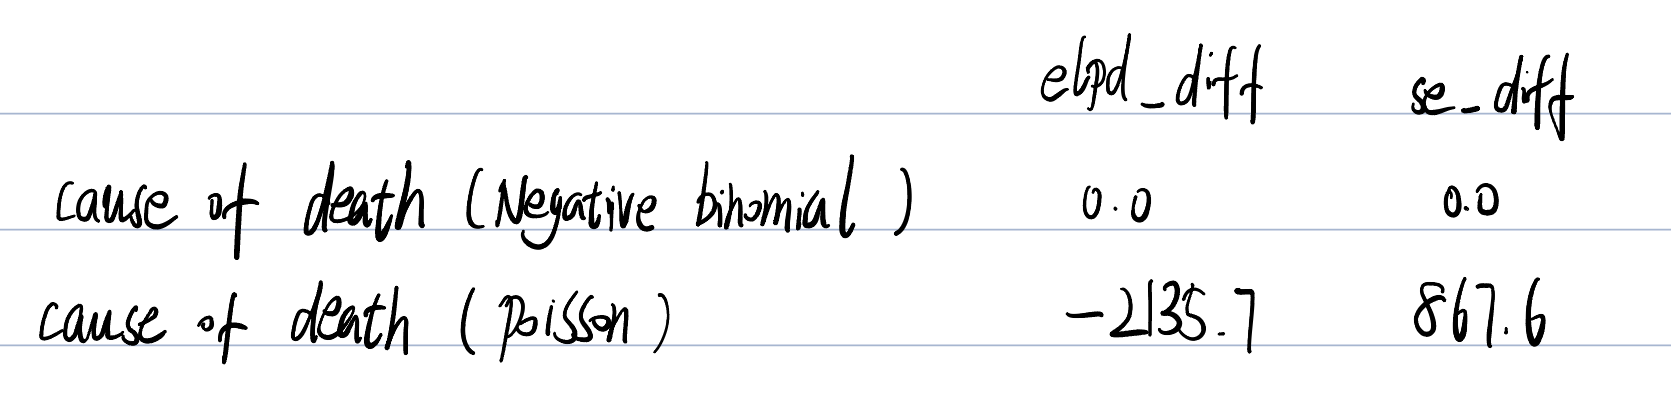 elpd_diff se_diff
cause of death (Negative binomial) 0.0 0.0
cause of death (Poisson) -2135.7 867.6